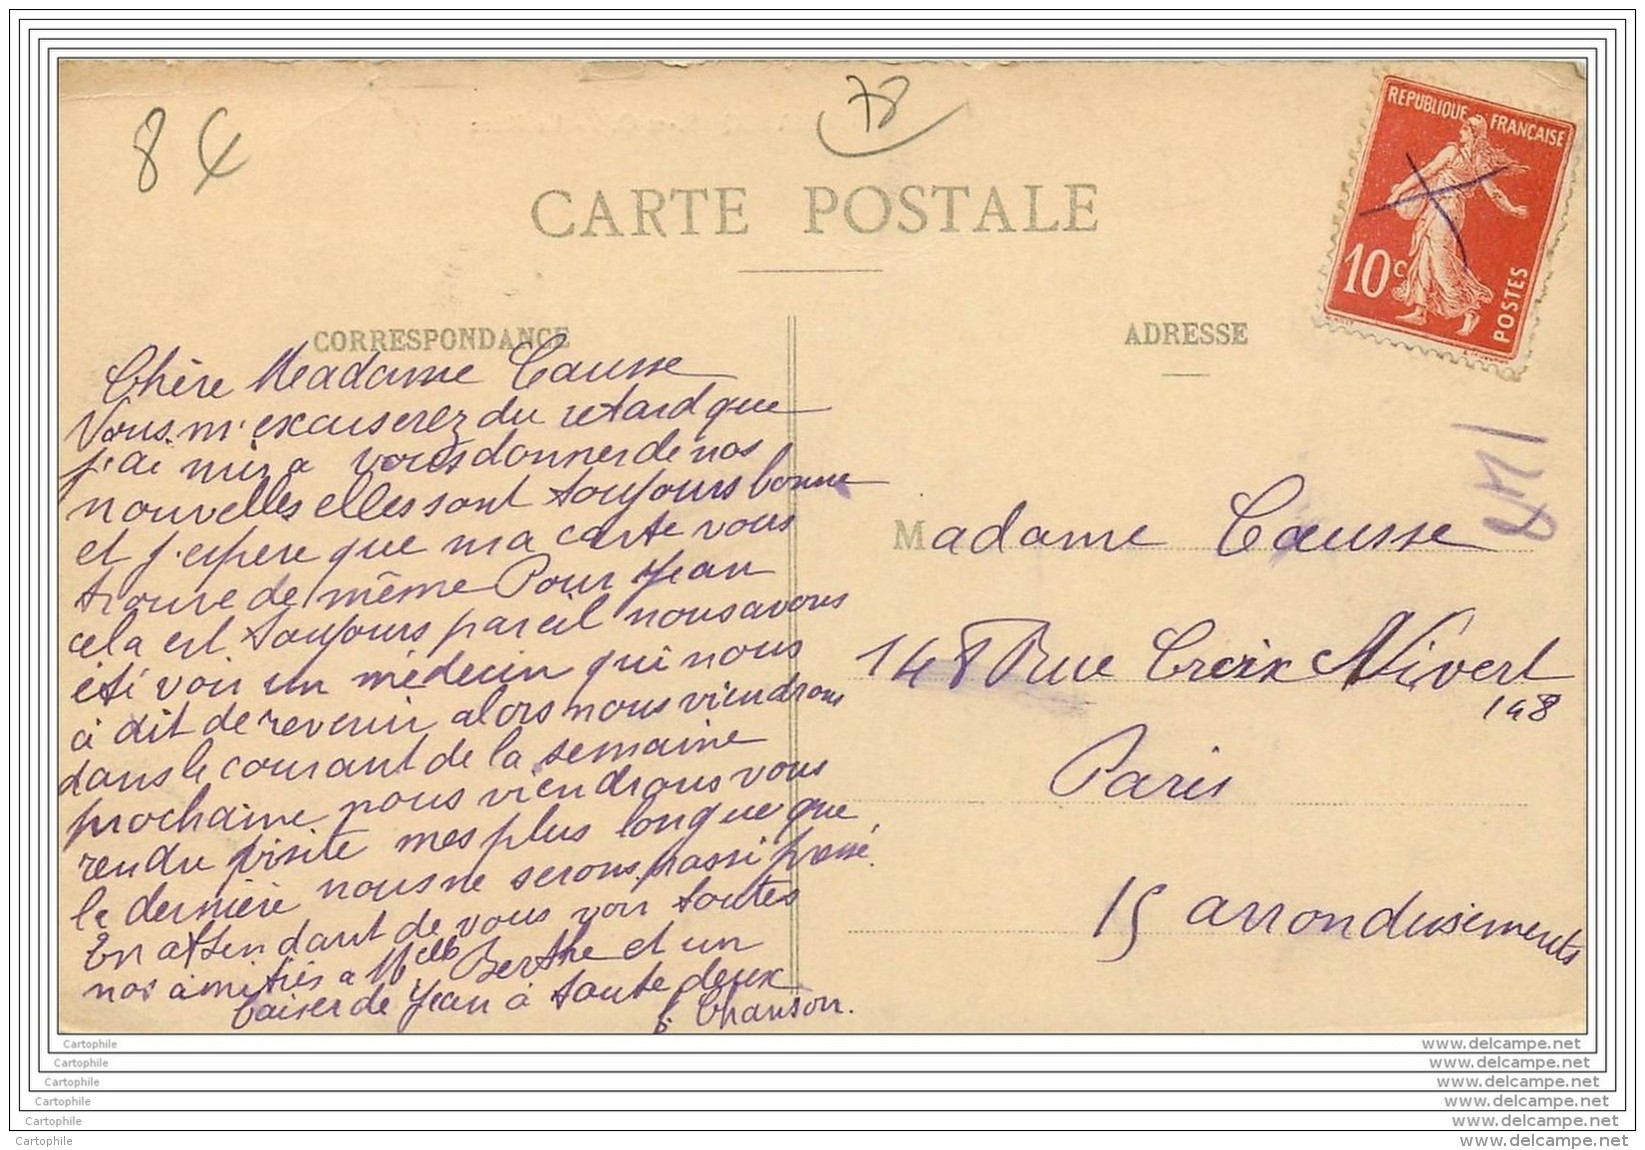 8€
78
CARTE POSTALE
REPUBLIQUE FRANÇAISE
10c
POSTES
CORRESPONDANCE
Chère Madame Causse
Vous m'excuserez du retard que
j'ai mis a vous donner de nos
nouvelles elles sont toujours bonne
et j'espere que ma carte vous
trouve de même Pour Jean
cela est toujours pareil nous avons
été voir un médecin qui nous
à dit de revenir alors nous viendrons
dans le courant de la semaine
prochaine nous viendrons vous
rendre visite mes plus longue que
la dernière nous ne serons pas si pressé.
En attendant de vous voir toutes
nos amitiés a Melle Berthe et un
baiser de Jean à toute deux
Chanson.
ADRESSE
Madame Causse
148 Rue Croix Nivert
148
Paris
15 arrondissements
Cartophile www.delcampe.net
Cartophile www.delcampe.net
Cartophile www.delcampe.net
Cartophile www.delcampe.net
Cartophile www.delcampe.net
Cartophile www.delcampe.net